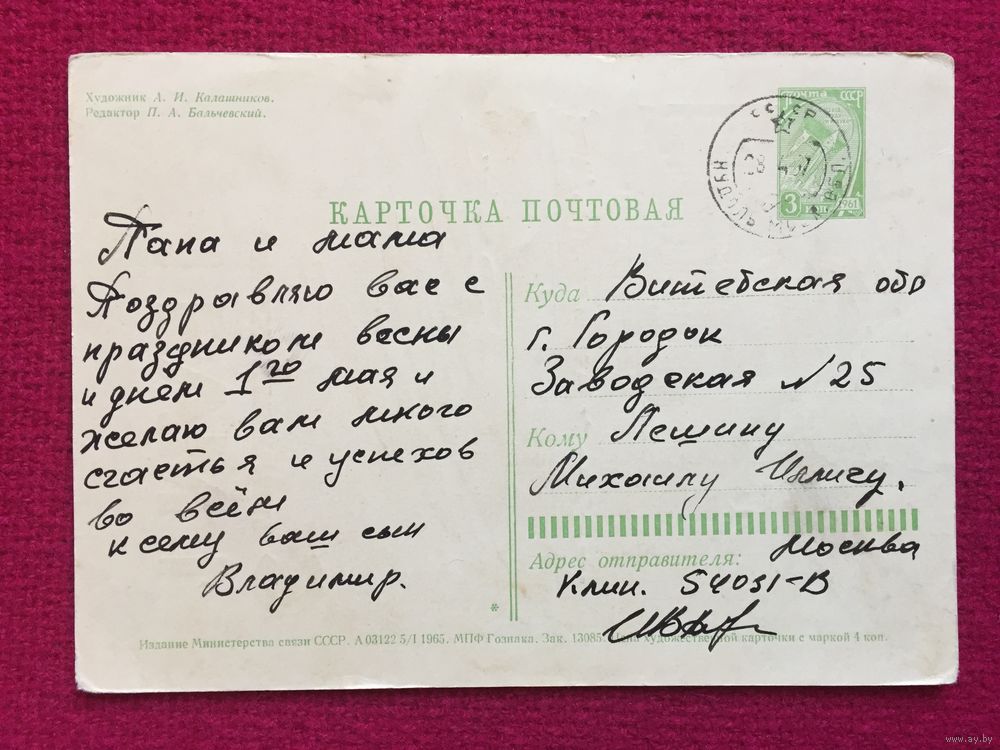 Художник А. И. Калашников.
Редактор П. А. Бальчевский.
ПОЧТА СССР
3 КОП
1961
СССР
КАРТОЧКА ПОЧТОВАЯ
Папа и мама
Поздравляю вас с
праздником весны
и днём 1го мая и
желаю вам много
счастья и успехов
во всём
к сему ваш сын
Владимир.
Куда Витебская обл
г. Городок
Заводская №25
Кому Лешину
Михаилу Иллису.
Адрес отправителя: Москва
Клин. 54031-В
*
Издание Министерства связи СССР. А 03122 5/I 1965. МПФ Гознака. Зак. 13085. Цена художественной карточки с маркой 4 коп.
www.ay.by